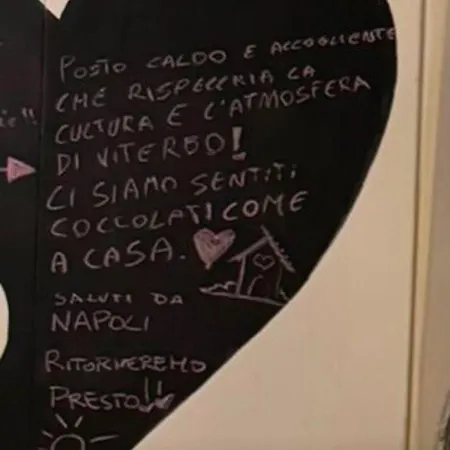 POSTO CALDO E ACCOGLIENTE
CHE RISPECCHIA LA
CULTURA E L'ATMOSFERA
DI VITERBO!
CI SIAMO SENTITI
COCCOLATI COME
A CASA.
SALUTI DA
NAPOLI
RITORNEREMO
PRESTO!!